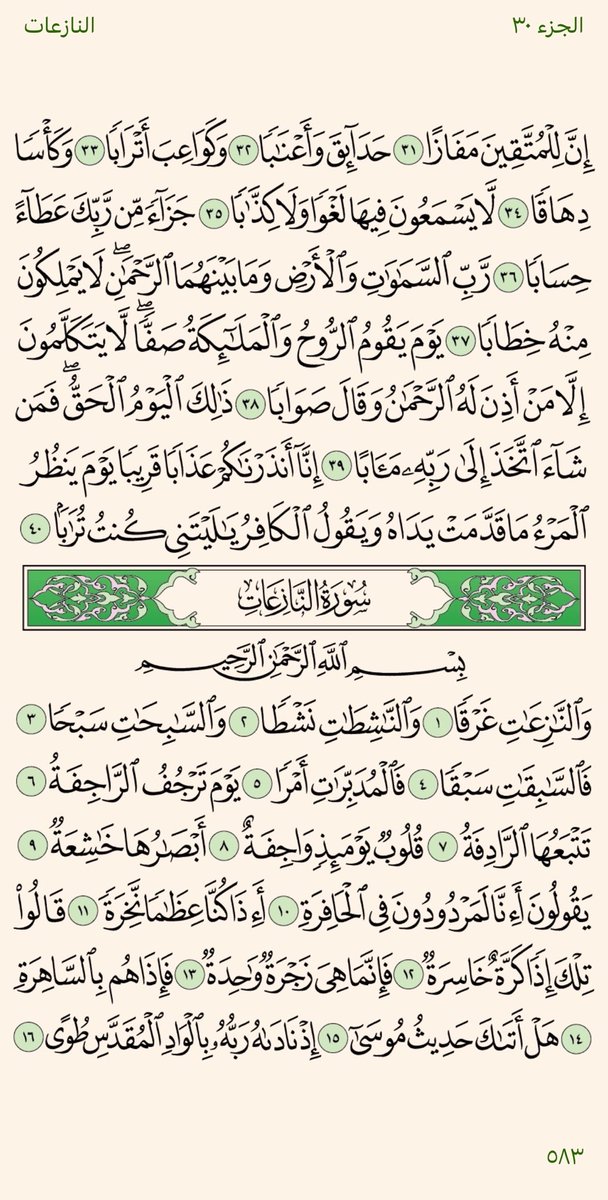 الجزء ٣٠
النازعات
إِنَّ لِلْمُتَّقِينَ مَفَازًا ٣١ حَدَآئِقَ وَأَعْنَٰبًا ٣٢ وَكَوَاعِبَ أَتْرَابًا ٣٣ وَكَأْسًا
دِهَاقًا ٣٤ لَّا يَسْمَعُونَ فِيهَا لَغْوًا وَلَا كِذَّٰبًا ٣٥ جَزَآءً مِّن رَّبِّكَ عَطَآءً
حِسَابًا ٣٦ رَّبِّ ٱلسَّمَٰوَٰتِ وَٱلْأَرْضِ وَمَا بَيْنَهُمَا ٱلرَّحْمَٰنِۖ لَا يَمْلِكُونَ
مِنْهُ خِطَابًا ٣٧ يَوْمَ يَقُومُ ٱلرُّوحُ وَٱلْمَلَٰٓئِكَةُ صَفًّاۖ لَّا يَتَكَلَّمُونَ
إِلَّا مَنْ أَذِنَ لَهُ ٱلرَّحْمَٰنُ وَقَالَ صَوَابًا ٣٨ ذَٰلِكَ ٱلْيَوْمُ ٱلْحَقُّۖ فَمَن
شَآءَ ٱتَّخَذَ إِلَىٰ رَبِّهِۦ مَـَٔابًا ٣٩ إِنَّآ أَنذَرْنَٰكُمْ عَذَابًا قَرِيبًا يَوْمَ يَنظُرُ
ٱلْمَرْءُ مَا قَدَّمَتْ يَدَاهُ وَيَقُولُ ٱلْكَافِرُ يَٰلَيْتَنِى كُنتُ تُرَٰبًۢا ٤٠
سُورَةُ النَّازِعَاتِ
بِسْمِ ٱللَّهِ ٱلرَّحْمَٰنِ ٱلرَّحِيمِ
وَٱلنَّٰزِعَٰتِ غَرْقًا ١ وَٱلنَّٰشِطَٰتِ نَشْطًا ٢ وَٱلسَّٰبِحَٰتِ سَبْحًا ٣
فَٱلسَّٰبِقَٰتِ سَبْقًا ٤ فَٱلْمُدَبِّرَٰتِ أَمْرًا ٥ يَوْمَ تَرْجُفُ ٱلرَّاجِفَةُ ٦
تَتْبَعُهَا ٱلرَّادِفَةُ ٧ قُلُوبٌ يَوْمَئِذٍ وَاجِفَةٌ ٨ أَبْصَٰرُهَا خَٰشِعَةٌ ٩
يَقُولُونَ أَءِنَّا لَمَرْدُودُونَ فِى ٱلْحَافِرَةِ ١٠ أَءِذَا كُنَّا عِظَٰمًا نَّخِرَةً ١١ قَالُوا۟
تِلْكَ إِذًا كَرَّةٌ خَاسِرَةٌ ١٢ فَإِنَّمَا هِىَ زَجْرَةٌ وَٰحِدَةٌ ١٣ فَإِذَا هُم بِٱلسَّاهِرَةِ
١٤ هَلْ أَتَىٰكَ حَدِيثُ مُوسَىٰٓ ١٥ إِذْ نَادَىٰهُ رَبُّهُۥ بِٱلْوَادِ ٱلْمُقَدَّسِ طُوًى ١٦
٥٨٣